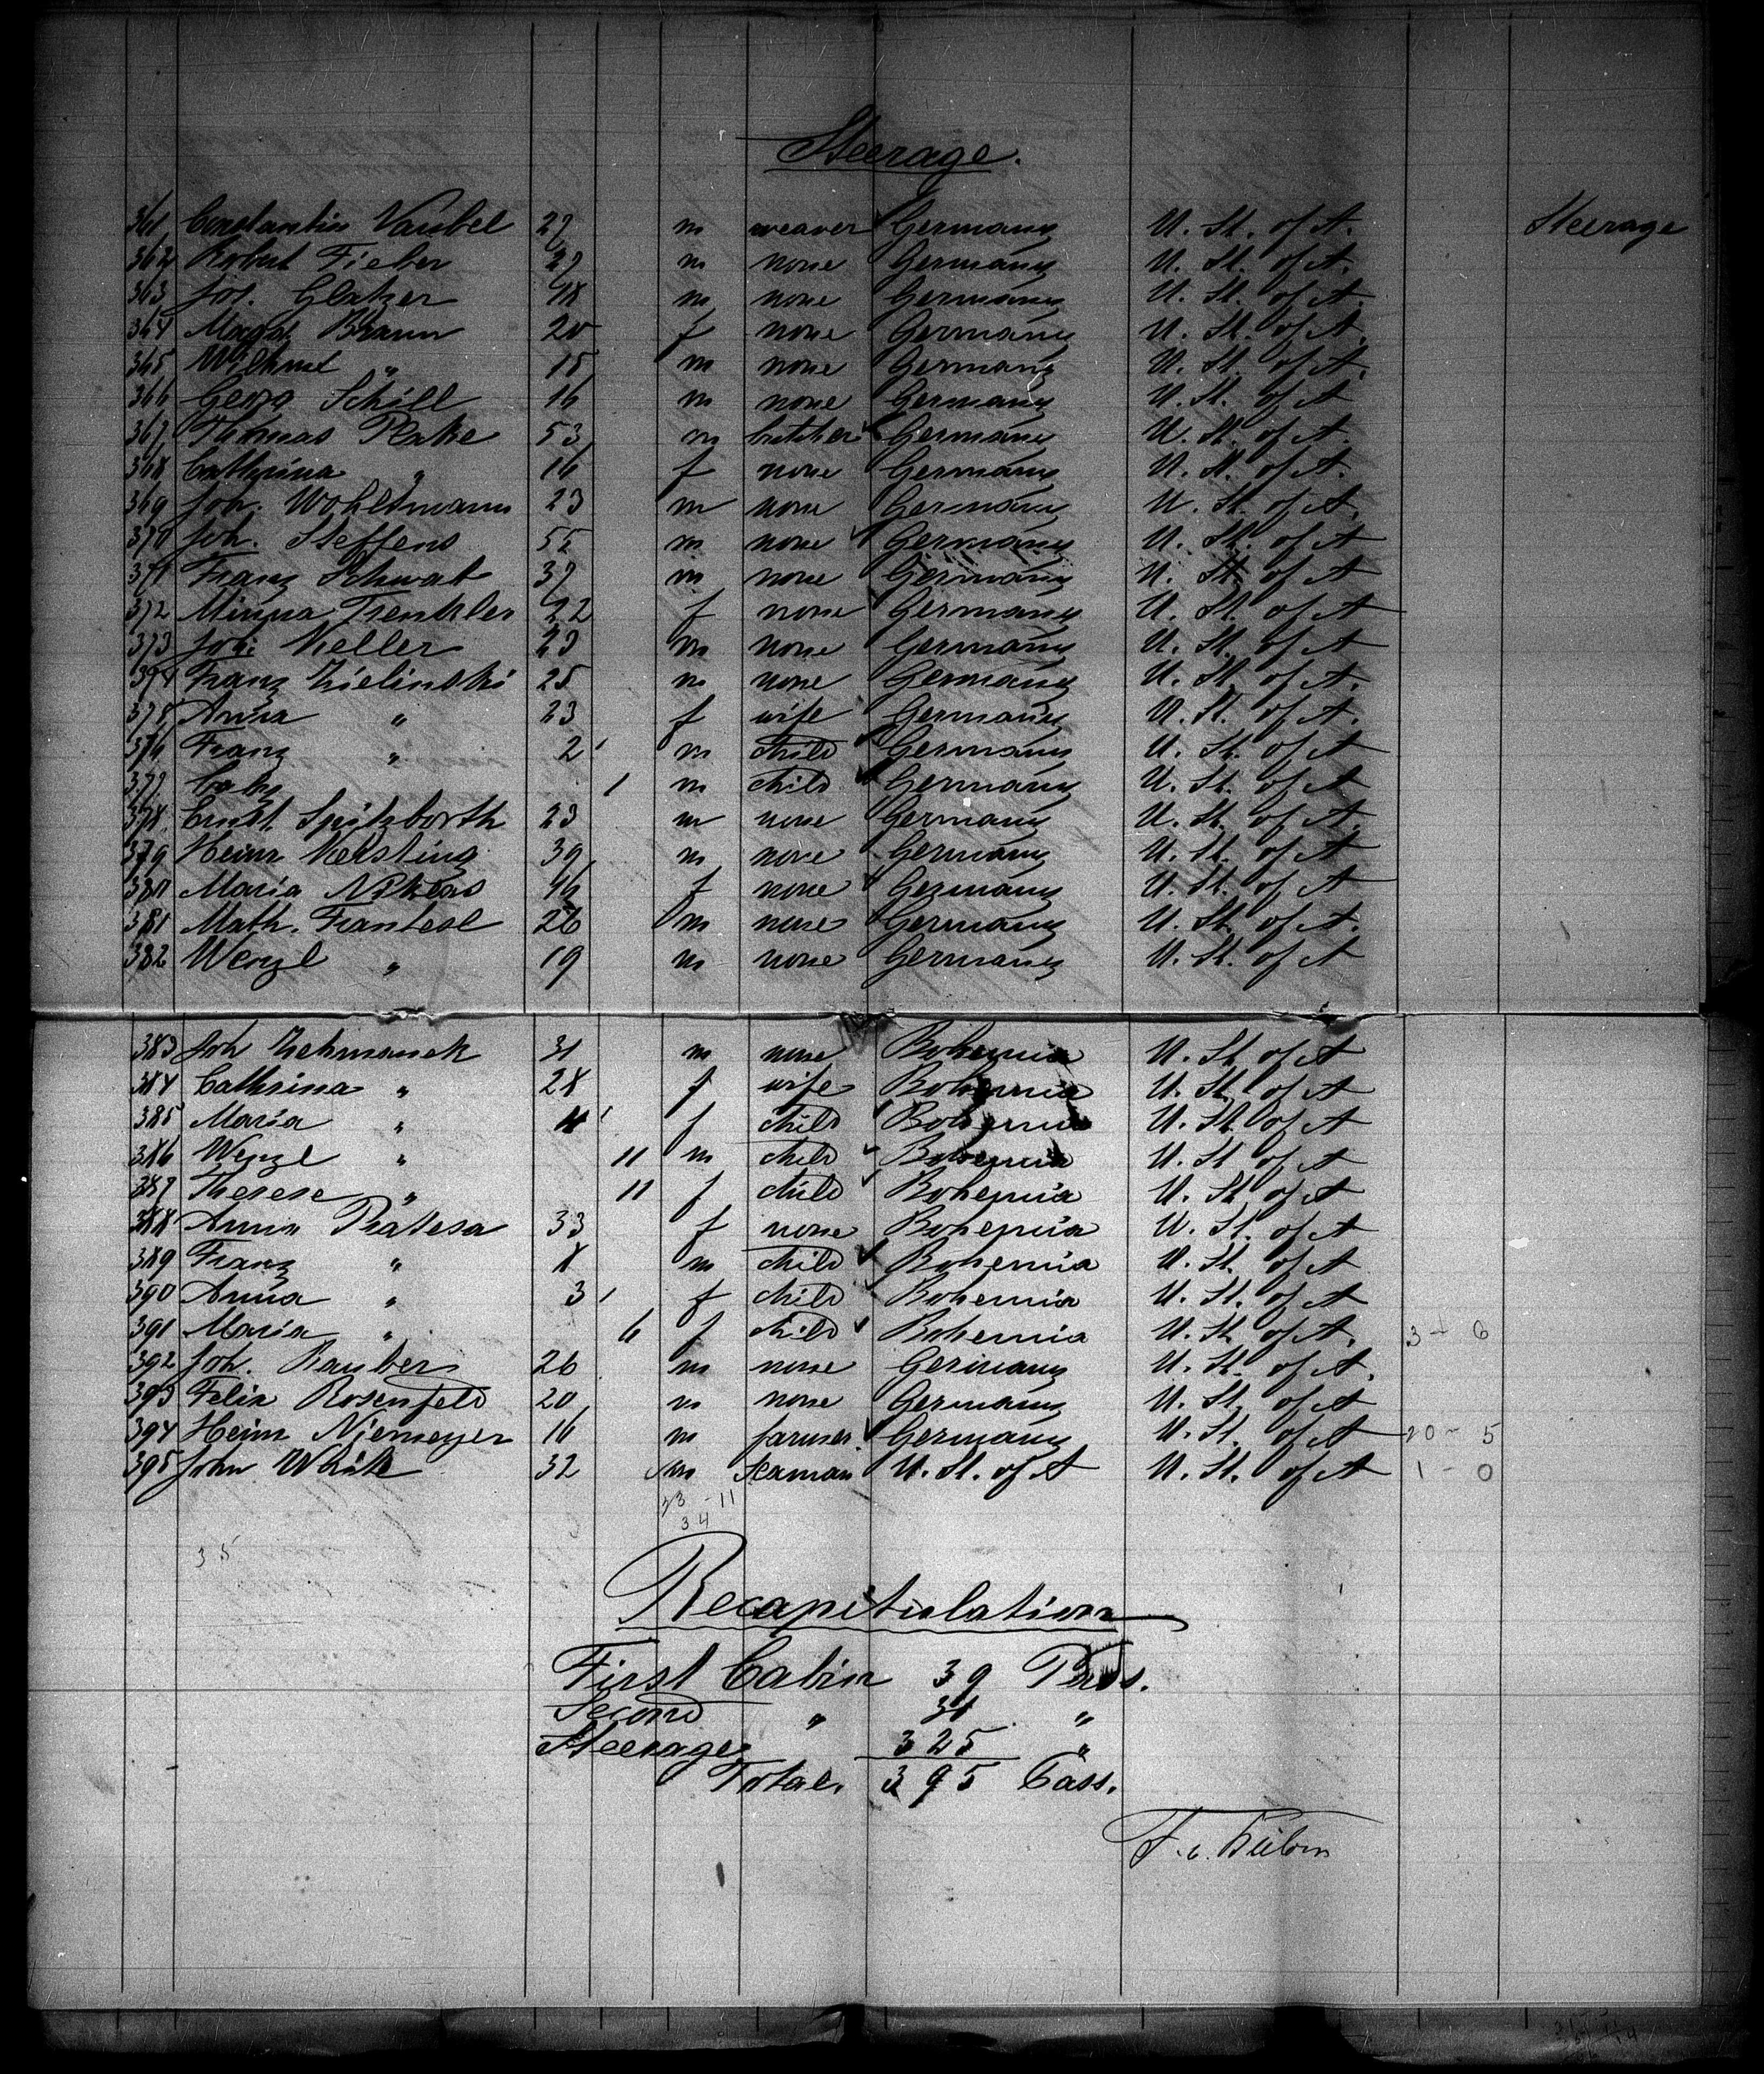 Steerage.
361 Constantin Vaubel 27 m weaver Germany U. St. of A. Steerage
362 Robert Fieber 27 m none Germany U. St. of A.
363 Jos. Glatzer 48 m none Germany U. St. of A.
364 Magd. Braun 20 f none Germany U. St. of A.
365 Wilhml " 15 m none Germany U. St. of A.
366 Georg Schill 16 m none Germany U. St. of A
367 Thomas Plake 53 m butcher Germany U. St. of A.
368 Cathrina " 16 f none Germany U. St. of A.
369 Joh. Wohltmann 23 m none Germany U. St. of A.
370 Joh. Steffens 55 m none Germany U. St. of A
371 Franz Schwab 37 m none Germany U. St. of A
372 Minna Trenkler 22 f none Germany U. St. of A
373 Joh. Keller 23 m none Germany U. St. of A
374 Franz Zielinski 25 m none Germany U. St. of A.
375 Anna " 23 f wife Germany U. St. of A.
376 Franz " 2 m child Germany U. St. of A
377 1 m child Germany U. St. of A
378 Ernst Spitzbarth 23 m none Germany U. St. of A.
379 Heinr Kersting 39 m none Germany U. St. of A
380 Maria Niklas 46 f none Germany U. St. of A
381 Math. Frantesl 26 m none Germany U. St. of A.
382 Wenzl " 19 m none Germany U. St. of A
383 Joh Zehmanek 31 m none Bohemia U. St. of A
384 Cathrina " 28 f wife Bohemia U. St. of A
385 Maria " 4 f child Bohemia U. St. of A
386 Wenzl " 11 m child Bohemia U. St. of A
387 Therese " 11 f child Bohemia U. St. of A
388 Anna Platesa 33 f none Bohemia U. St. of A
389 Franz " 8 m child Bohemia U. St. of A
390 Anna " 3 f child Bohemia U. St. of A
391 Maria " 6 f child Bohemia U. St. of A. 3 - 6
392 Joh. Rauber 26 m none Germany U. St. of A.
393 Felix Rosenfeld 20 m none Germany U. St. of A
394 Heinr Niemeyer 16 m farmer Germany U. St. of A 20 - 5
395 John White 32 m seaman U. St. of A U. St. of A 1 - 0
23 - 11
34
35
Recapitulation
First Cabin 39 Pass.
Second " 31 "
Steerage 325 "
Total. 395 Pass.